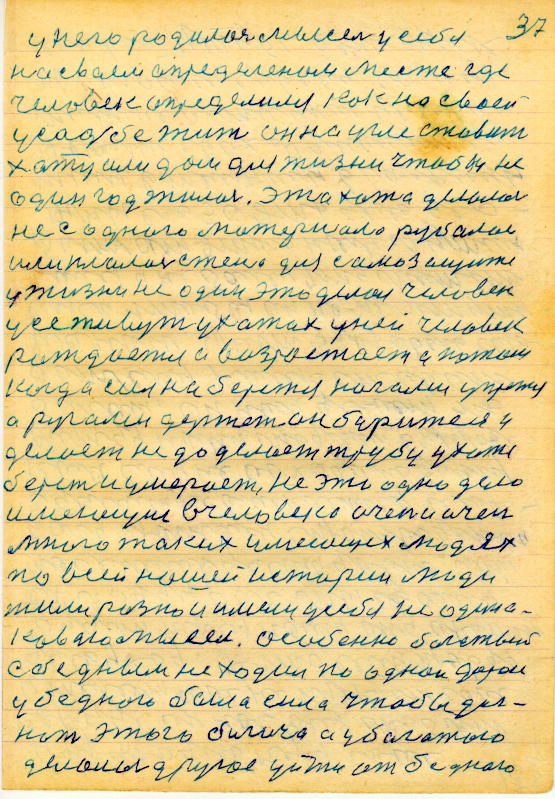 37
у него родилася мысел у себя
на сваем определеном месте где
человек определился как на своей
усадбе жит он на угле ставит
хату или дом для жизни чтобы не
один год жила. Эта хата делалас
не с одного материала рубалас
или клалас стена для самозащите
у жизни не один это делал человек
усе живут у хатах у ней человек
рождается а возростает а потом
когда сил наберется начали упрятся
а руками держет он борится и
делает не доделает трубу у хате
берет и умерает, не это одно дело
имеющие в человека очен и очен
много таких имеющих людях
по всей нашей истории люди
жили разно и имели у себя не одина-
коваю мысел. особенно богатый
с бедным не ходил по одной дороги
у бедного была сила чтобы дог-
нат этого богача а у богатого
делалос другое уйти от бедного